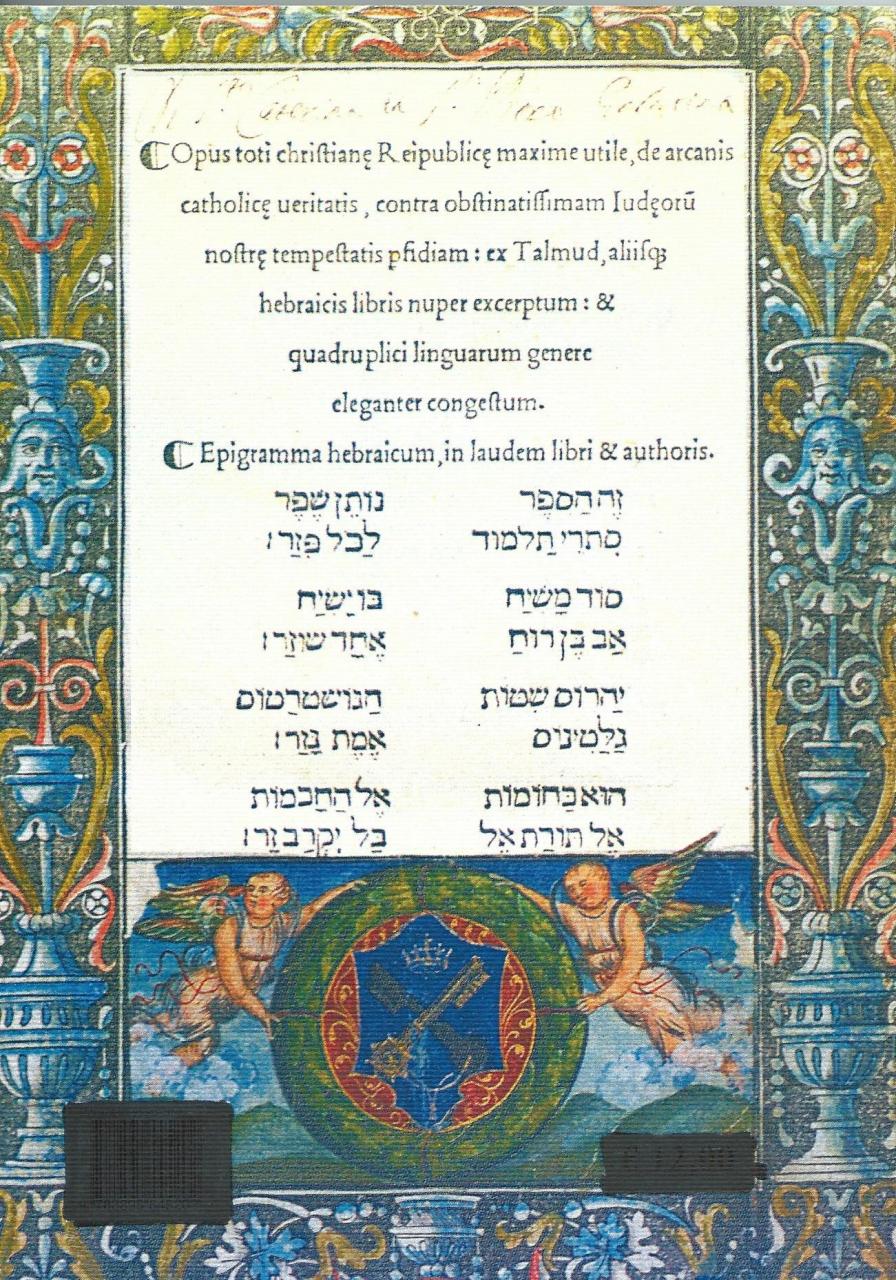 ⸿Opus toti chriſtianę Reipublicę maxime utile, de arcanis
catholicę ueritatis, contra obſtinatiſſimam Iudęorū
noſtrę tempeſtatis ꝑfidiam: ex Talmud, aliiſqꝫ
hebraicis libris nuper excerptum: &
quadruplici linguarum genere
eleganter congeſtum.
⸿Epigramma hebraicum, in laudem libri & authoris.
זֶה הַסֵפֶר נוֹתֵן שֶׁפֶר
סִתְרֵי תַלְמוּד לַכֹל פִּזַר׃
סוֹד מָשִׁיחַ בּוֹ יָשִׂיחַ
אַב בֶּן רוּחַ אֶחָד שׁוּזַר׃
יַהֲרוֹס שִׁטוֹת הַנּוֹשטְרַטוֹס
גַלַטִינוֹס אֱמֶת גָּזַר׃
הוּא כַּחוֹמוֹת אֶל הַחָכְמוֹת
אֶל תּוֹרַת אֵל בַּל יִקְרַב זָר׃